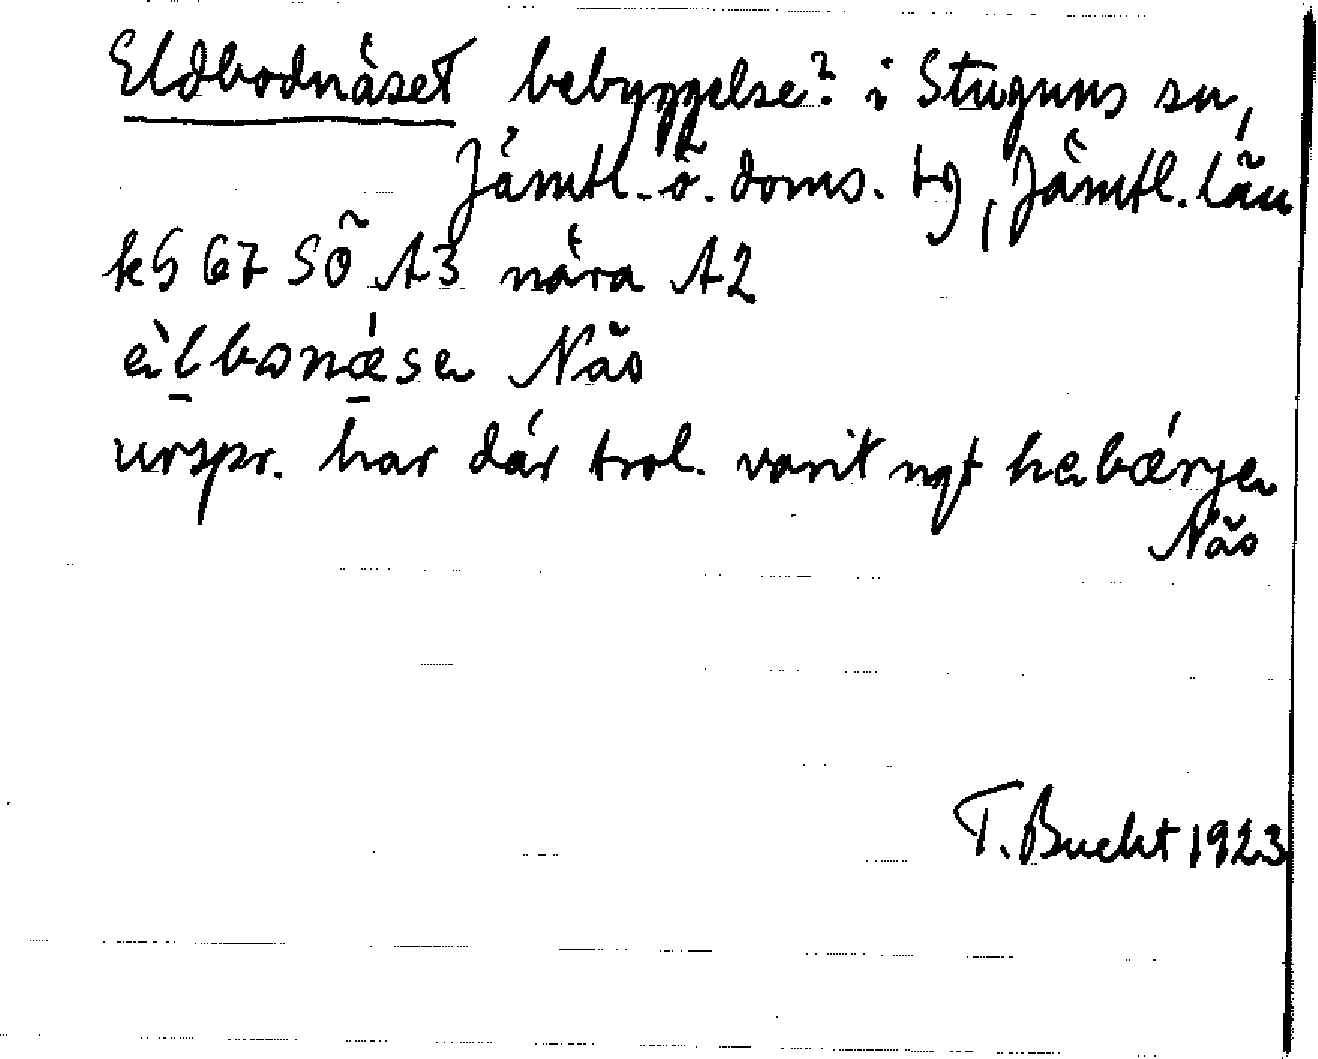 Eldbodnäset bebyggelse? i Stuguns sn,
Jämtl. ö. doms. tg, Jämtl. län
kS 67 SÖ A3 nära A2
èlbonǽsen Näs
urspr. har där trol. varit ngt hebǽrjen
Näs
T. Bucht 1923